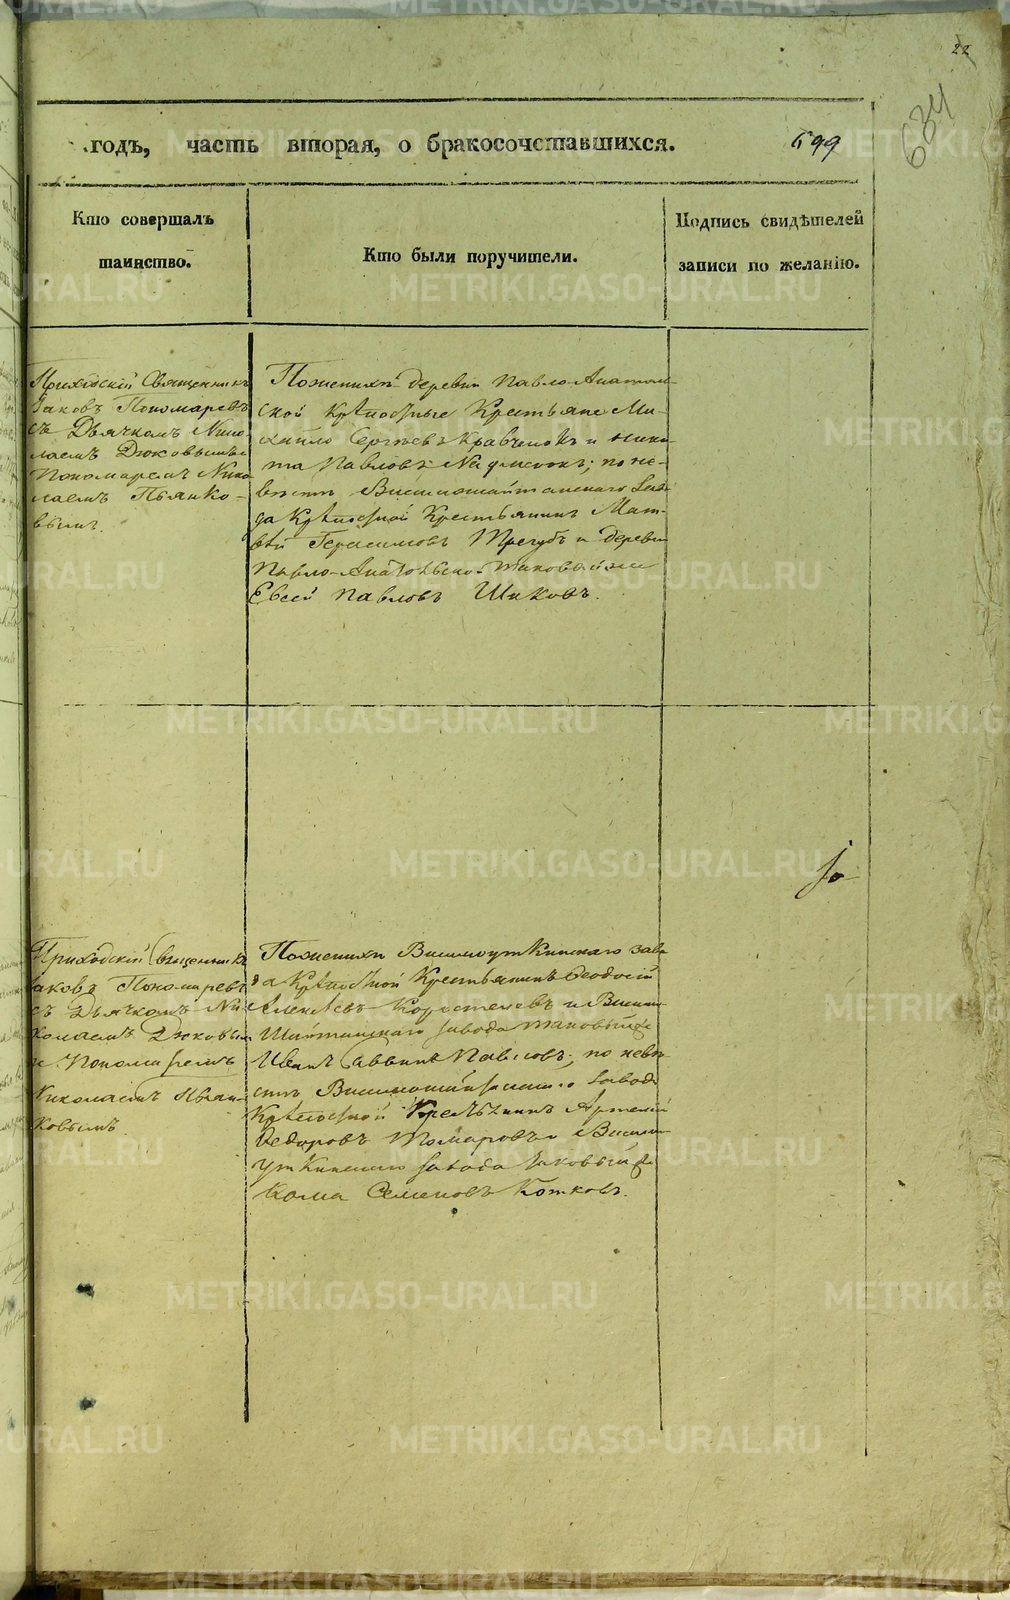 22
634
годъ, часть вторая, о бракосочетавшихся. 699
Кто совершалъ
таинство.
Кто были поручители.
Подпись свидѣтелей
записи по желанію.
Приходскій Священникъ
Іаковъ Пономаревъ
съ Дьячкомъ Нико-
лаемъ Дюковымъ и
Пономаремъ Нико
лаемъ Пьянко-
вымъ.
Поженихѣ деревни Павло-Анатоль-
ской крѣпостные Крестьяне Ми-
хайло Сергѣевъ Кравченокъ и Ники-
та Павловъ; по не-
вѣстѣ Висимошайтанскаго Заво
да Крѣпостной Крестьянинъ Мат-
вѣй Герасимовъ Трегубъ и деревни
Павло-Анатольской таковый же
Евсей Павловъ Шиковъ.
Приходскій Священникъ
Іаковъ Пономаревъ
съ Дьячкомъ Ни-
колаемъ Дюковым
и Пономаремъ
Николаемъ Пьян-
ковымъ.
Поженихѣ Висимоуткинскаго заво
да Крѣпостной Крестьянинъ Ѳеодосій
Алексѣевъ Коростелевъ и Висимо
Шайтанскаго завода таковый же
Иванъ Саввинъ Павловъ; по невѣ
стѣ Висимошайтанскаго Завода
Крѣпостной Крестьянинъ Артемій
Ѳедоровъ Томаровъ и Висимо
уткинскаго завода таковый же
Ѳома Семеновъ Котковъ.
METRIKI.GASO-URAL.RU